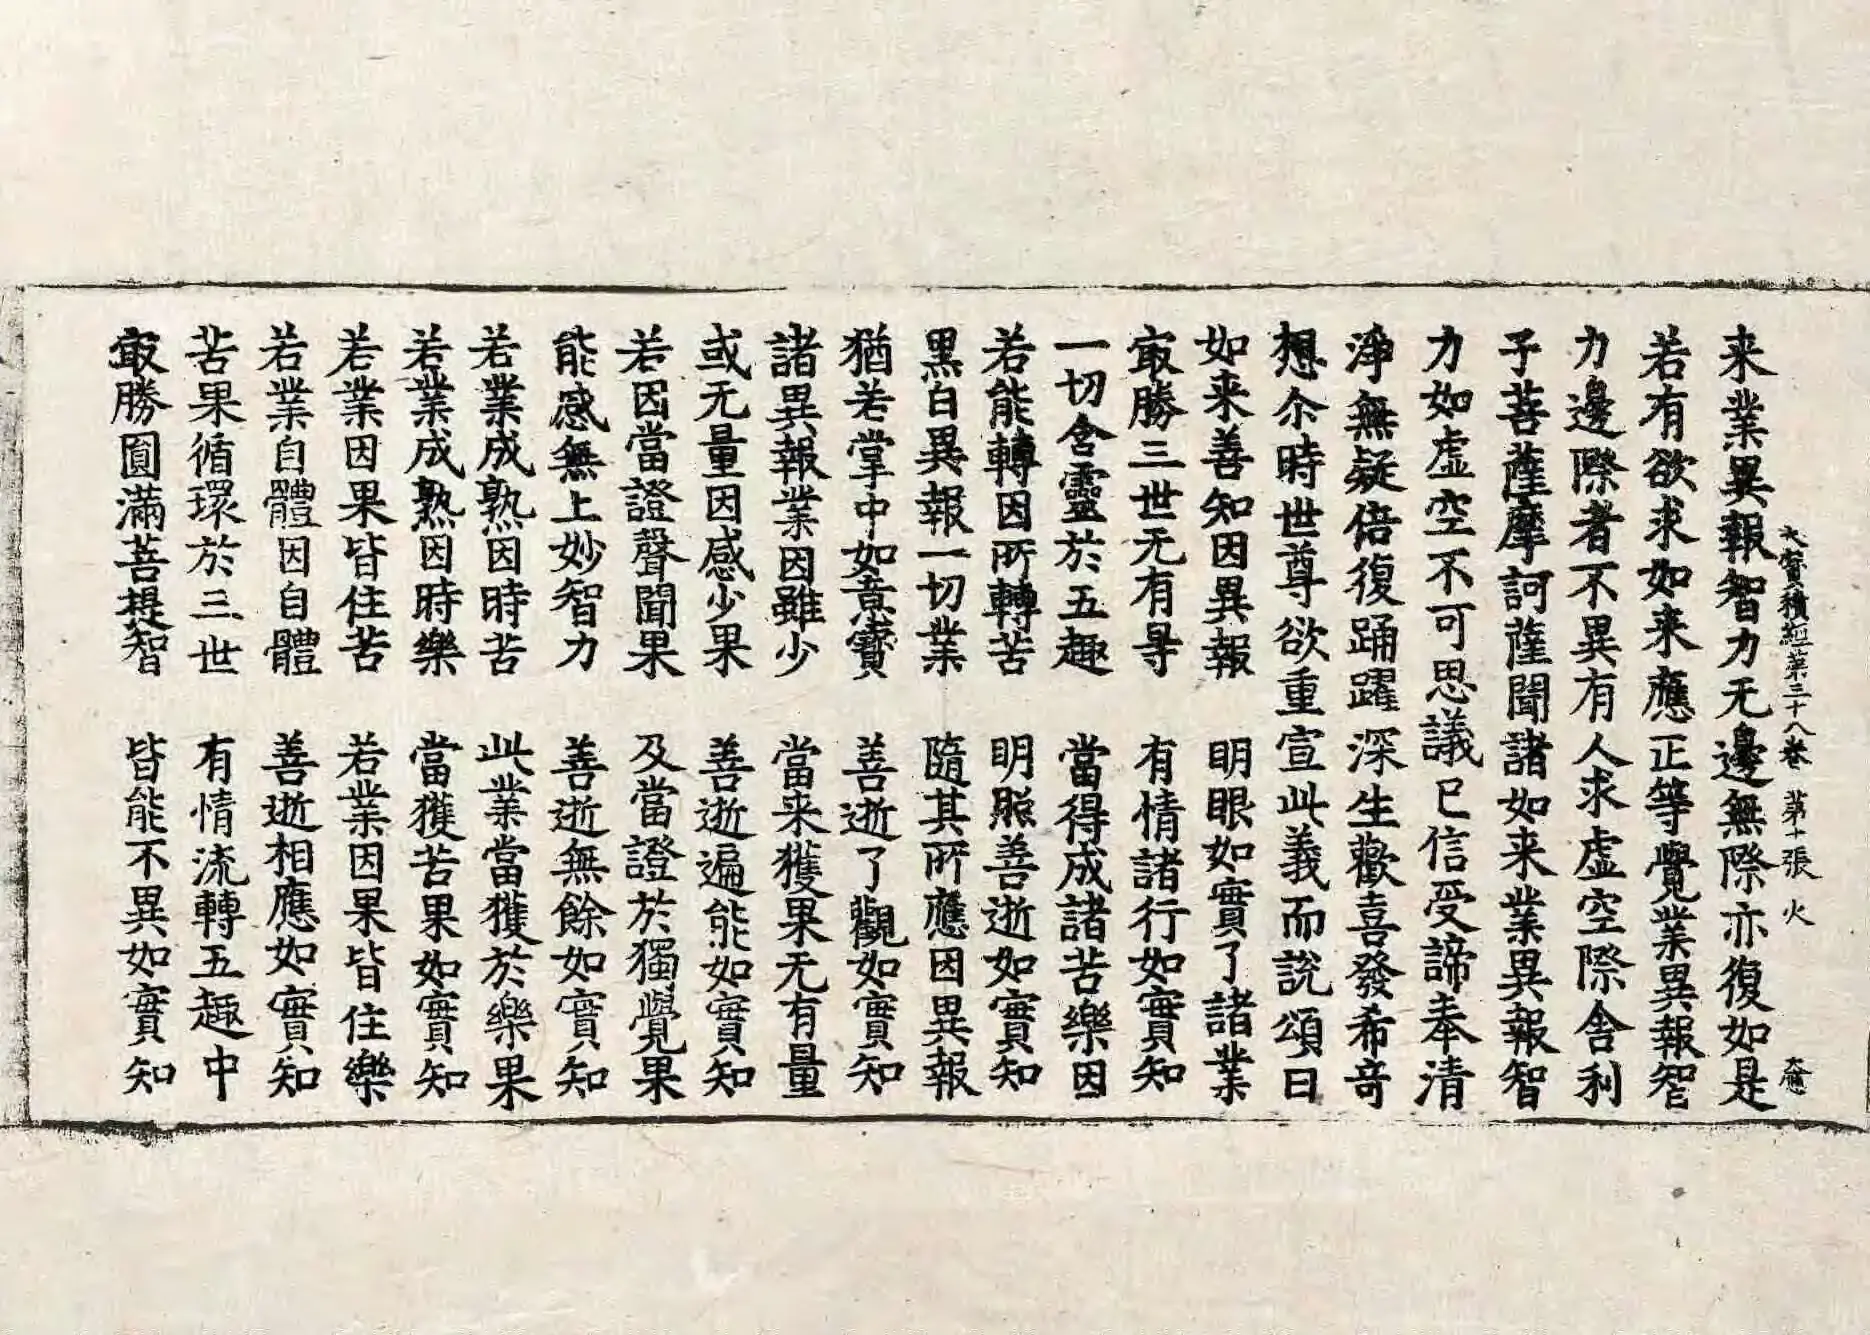 大寶積經第三十八卷 第十張 火
来業異報智力无邊無際亦復如是
若有欲求如来應正等覺業異報智
力邊際者不異有人求虛空際舍利
子菩薩摩訶薩聞諸如来業異報智
力如虛空不可思議已信受諦奉清
淨無疑倍復踊躍深生歡喜發希奇
想尒時世尊欲重宣此義而說頌曰
如来善知因異報 明眼如實了諸業
㝡勝三世无有㝵 有情諸行如實知
一切含靈於五趣 當得成諸苦樂因
若能轉因所轉苦 明照善逝如實知
黑白異報一切業 隨其所應因異報
猶若掌中如意寶 善逝了觀如實知
諸異報業因雖少 當来獲果无有量
或无量因感少果 善逝遍能如實知
若因當證聲聞果 及當證於獨覺果
能感無上妙智力 善逝無餘如實知
若業成熟因時苦 此業當獲於樂果
若業成熟因時樂 當獲苦果如實知
若業因果皆住苦 若業因果皆住樂
若業自體因自體 善逝相應如實知
苦果循環於三世 有情流轉五趣中
㝡勝圓滿菩提智 皆能不異如實知